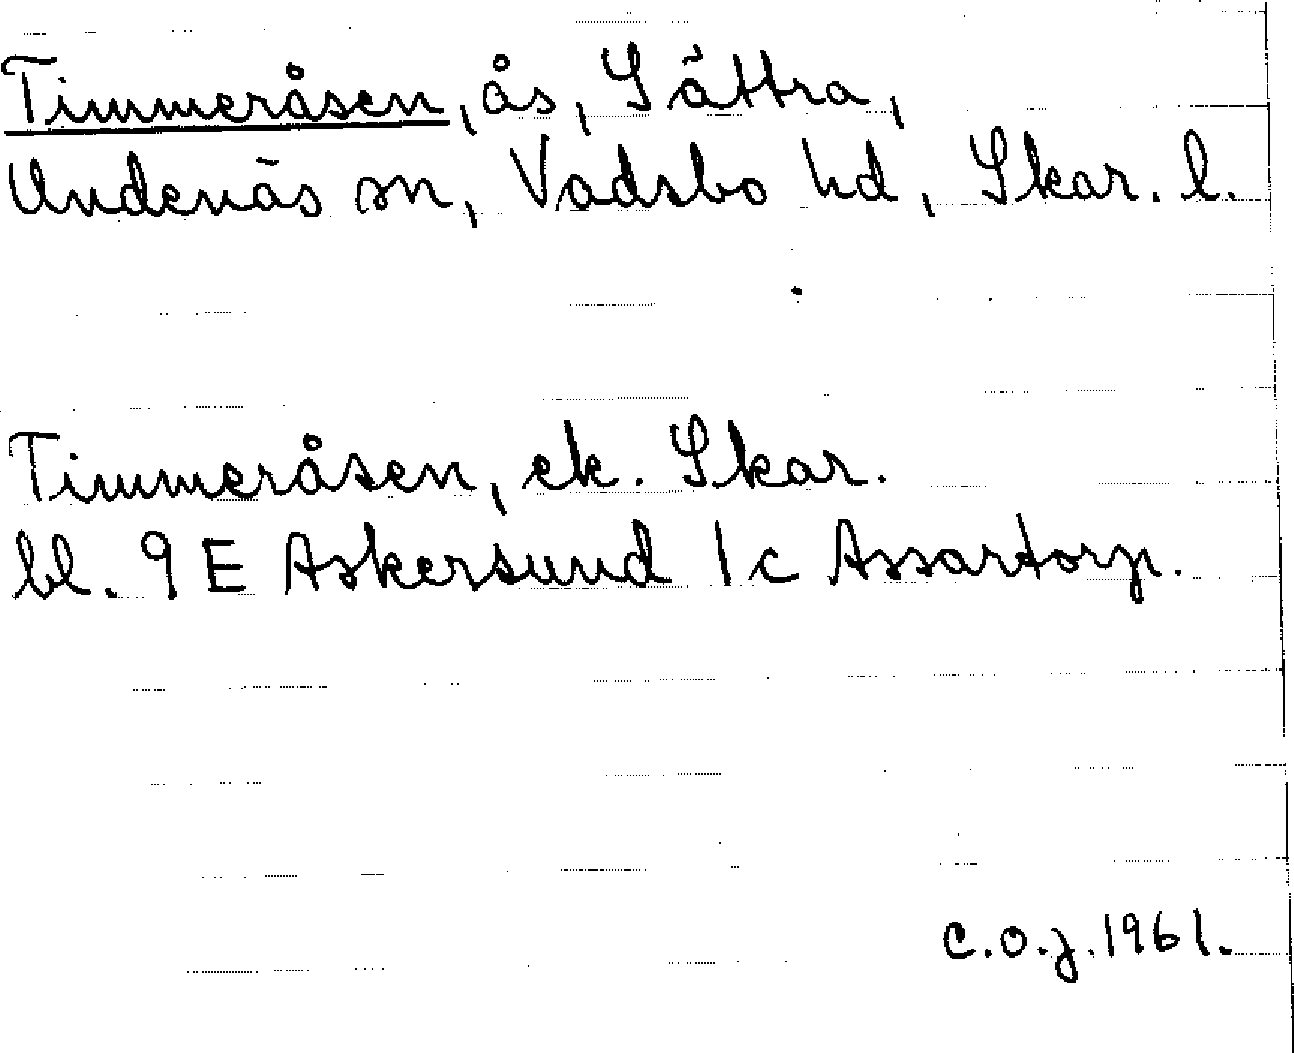 Timmeråsen, ås, Sättra,
Undenäs sn, Vadsbo hd, Skar. l.
Timmeråsen, ek. Skar.
bl. 9 E Askersund 1 c Assartorp.
C.O.J. 1961.